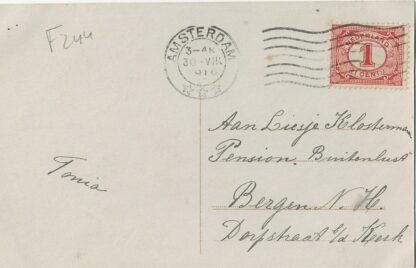 F244
AMSTERDAM
3-4N
30·VIII
NEDERLAND
1
CENT
Aan Liesje Klosterman
Pension Buitenlust
Bergen N. H.
Dorpstraat t/d Kerk
Tonia